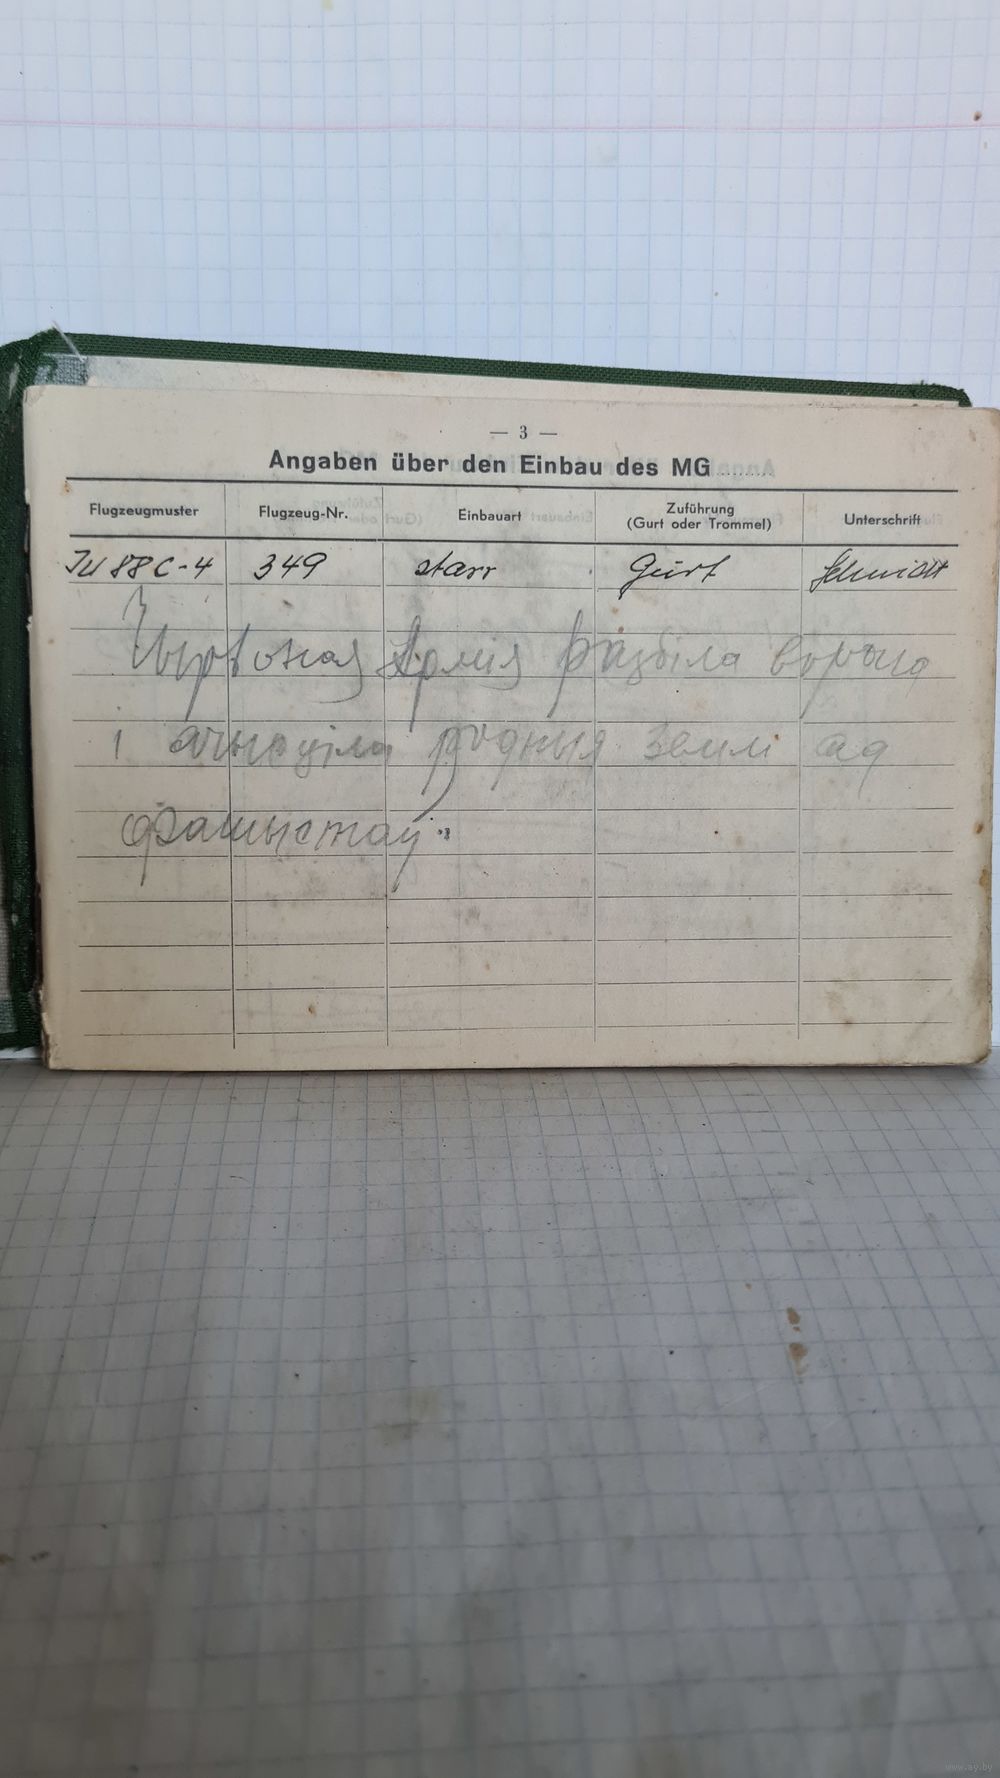 — 3 —
Angaben über den Einbau des MG
Flugzeugmuster Flugzeug-Nr. Einbauart Zuführung (Gurt oder Trommel) Unterschrift
Ju 88 C-4 349 starr Gurt Schmidt
Чырвоная Армія разбіла ворыга
і ачысціла родныя землі ад
фашыстаў.
www.ay.by